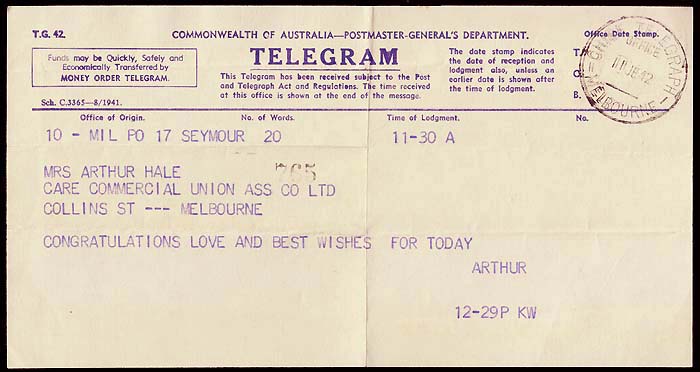 T.G. 42.
COMMONWEALTH OF AUSTRALIA—POSTMASTER-GENERAL'S DEPARTMENT.
Office Date Stamp.
Funds may be Quickly, Safely and
Economically Transferred by
MONEY ORDER TELEGRAM.
Sch. C.3365—8/1941.
TELEGRAM
This Telegram has been received subject to the Post
and Telegraph Act and Regulations. The time received
at this office is shown at the end of the message.
The date stamp indicates
the date of reception and
lodgment also, unless an
earlier date is shown after
the time of lodgment.
T.
O.
B.
CHIEF TELEGRAPH
OFFICE
JE 42
MELBOURNE
Office of Origin. No. of Words. Time of Lodgment. No.
10 - MIL PO 17 SEYMOUR 20 11-30 A
765
MRS ARTHUR HALE
CARE COMMERCIAL UNION ASS CO LTD
COLLINS ST --- MELBOURNE
CONGRATULATIONS LOVE AND BEST WISHES FOR TODAY
ARTHUR
12-29P KW